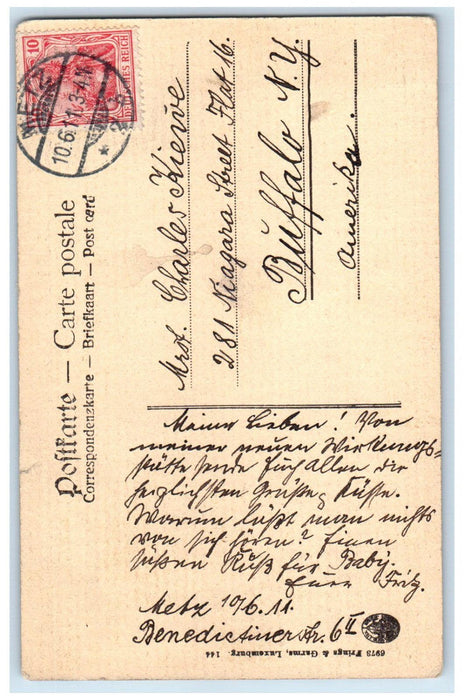 10
DEUTSCHES REICH
METZ
10.6.11. 3-4N.
Postkarte — Carte postale
Correspondenzkarte — Briefkaart — Post card
Mrst. Charles Kiewe
281 Niagara Street Flat 16.
Buffalo N.Y.
Amerika.
Meine Lieben! Von
meiner neuen Wirkungs-
stätte sende Euch allen die
herzlichsten Grüße & Küsse.
Warum läßt man nichts
von sich hören? Einen
süßen Kuß für Baby.
Euer Fritz.
Metz 10/6.11.
Benedictinerstr. 6 II
6973 Frings & Garms, Luxemburg. 144